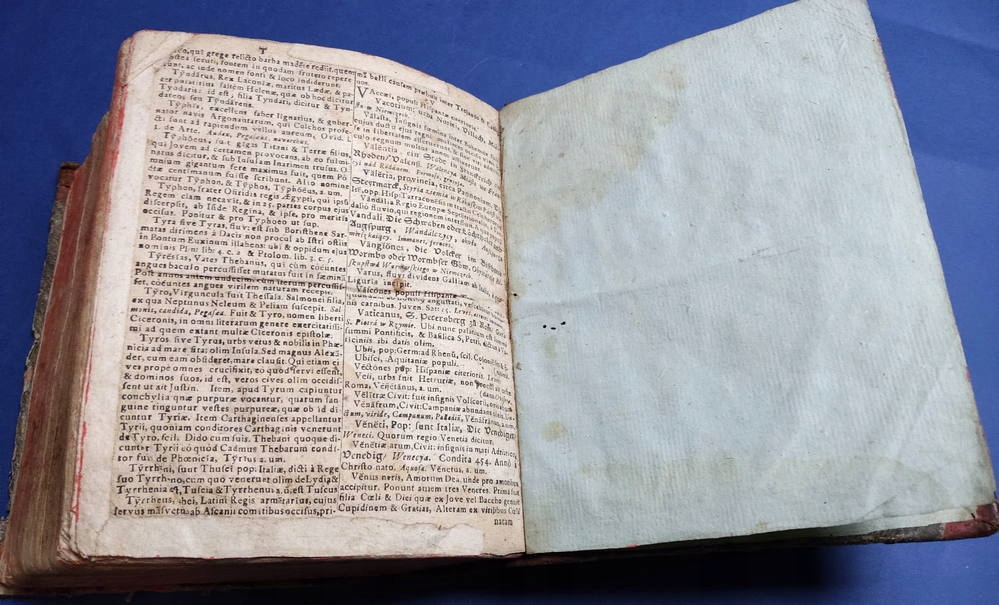 T
co, qui grege relicto barba madďie rediit, quem
ostea secuti, fontem in quodam fruteto repere
runt, ac inde nomen fonti & loco indiderunt.
Tyndarus, Rex Laconiæ, maritus Lædæ, & pa-
ter putativus saltem Helenæ, quæ ob hoc dicitur
Tyndaris: id est, filia Tyndari, dicitur & Tyn-
dareus seu Tyndareus.
Typhis, excellens faber lignarius, & guber-
nator navis Argonautarum, qui Colchos profe-
cti sunt ad rapiendum vellus aureum, Ovid. l.
1. de Arte. Audax, Pegaseus, navarchus.
Typhöeus, fuit gigas Titani & Terræ filius,
qui Jovem ad certamen provocans, ab eo fulmi-
natus dicitur, & sub Insulam Inarimen trusus. O-
mnium gigantum fere maximus fuit, quem Po-
ëtæ centimanum fuisse scribunt. Alio nomine
vocatur Typhon, & Typhos, Typhöeus, a. um.
Typhon, frater Osiridis regis Ægypti, qui ipsū
Regem clam necavit, & in 25. partes corpus ejus
discerpsit, ab Iside Regina, & ipse, pro meritis
occisus. Ponitur & pro Typhoeo ut sup.
Tyra sive Tyras, fluv: est sub Boristhene Sar-
matas dirimens à Dacis non procul ab Istri ostiis
in Pontum Euxinum illabens: ubi & oppidum ejus
nominis Plin: lib: 4. c. 2 & Ptolom. lib. 3. c. 5.
Tyresias, Vates Thebanus, qui cùm coëuntes
angues baculo percussisset mutatus fuit in fæminā
Post annum autem undecim, cum iterum percussis-
set, coëuntes angues virilem naturam recepit.
Tyro, Virguncula fuit Thessala. Salmonei filia,
ex qua Neptunus Neleum & Peliam suscepit. Sal
monis, candida, Pegasea. Fuit & Tyro, nomen liberti
Ciceronis, in omni literarum genere exercitatissi-
mi ad quem extant multæ Ciceronis epistolæ.
Tyros sive Tyrus, urbs vetus & nobilis in Phæ-
nicia ad mare sita: olim Insula. Sed magnus Alexā-
der, cum eam obsideret, mare clausit. Qui etiam ci-
ves prope omnes crucifixit, eò quod servi essent,
& dominos suos, id est, veros cives olim occidis-
sent ut ait Justin. Item, apud Tyrum capiuntur
conchylia quæ purpuræ vocantur, quarum san-
guine tinguntur vestes purpureæ, quæ ob id di-
cuntur Tyriæ. Item Carthaginenses appellantur
Tyrii, quoniam conditores Carthaginis venerunt
de Tyro, scil. Dido cum suis. Thebani quoque di-
cuntur Tyrii eò quod Cadmus Thebarum condi-
tor fuit de Phœnicia, Tyrius a. um.
Tyrrheni, sunt Thusci pop: Italiæ, dicti à Rege
suo Tyrrheno, cum quo venerunt olim de Lydia &
Tyrrhenia est, Tuscia & Tyrrhenus a. ū. est Tuscus
Tyrrheus, hei, Latini Regis armētarius, cujus
servus māsvetū ab Ascanii comitibus occisus, pri-
mā belli causam præbuit inter Trojanos &
nos.
VAccæi, populi Hispaniæ
Vacorium: urbs Norici, Villach,
w Niemczech.
Valasca, Insignis fœmina fuit Bohema
ejus ductu
se in libertatem asseruerunt
culo regnum multos annos
Valentia, ein Stadt in
Rhoden/ Valentz. Walencya Miasto we
nád Rodanem. Formosa, Graja.
Valeria, provincia, circa Pannoniam
Steyrmarck, Styria ziemia w Rákusiech
Vandalia Regio Europæ Septentrionalis
dalio fluvio, qui regionem
Vandali. Die Schwaben oder
Augspurg, Wándálczycy,
Immanes, feroces.
Vangiones, die Völcker im Bisthumb
Wormbs oder Wormbser Göw.
skupstwá Warmijskiego w Niemczech.
Varus, fluvius dividens Galliam ab Italia,
Liguria incipit.
Vascones populi Hispaniæ
nis carnibus. Juven. Sat: 15.
Vaticanus, S. Petersberg zu Rom,
S. Piotra w Rzymie. Ubi nunc palatium est
summi Pontificis, & Basilica S. Petri, dictus à
ticiniis ibi datis olim.
Ubii, pop: Germ: ad Rhenū, scil. Colonienses
Ubisci, Aquitaniæ populi.
Vectones pop: Hispaniæ citerioris.
Veii, urbs fuit Hetruriæ, non procul ab urbe
Roma, Veientanus, a. um.
Velitræ Civit: fuit insignis Volscorū,
Venafrum, Civit: Campaniæ abundans
ctum, viride, Campanum, Palladiū, Venafranus, a. um.
Veneti, Pop: sunt Italiæ, Die Venediger/
Weneci. Quorum regio Venetia dicitur.
Venetiæ arum, Civit: insignis in mari Adriatico,
Venedig/ Wenecya. Condita 454. Anno à
Christo nato. Aquosa. Venetus, a. um.
Venus neris, Amorum Dea, unde pro amoribus
accipitur. Ponunt autem tres Veneres. Prima fuit
filia Cœli & Diei quæ ex Jove vel Baccho genuit
Cupidinem & Gratias, Alteram ex viribus Cœli
natam